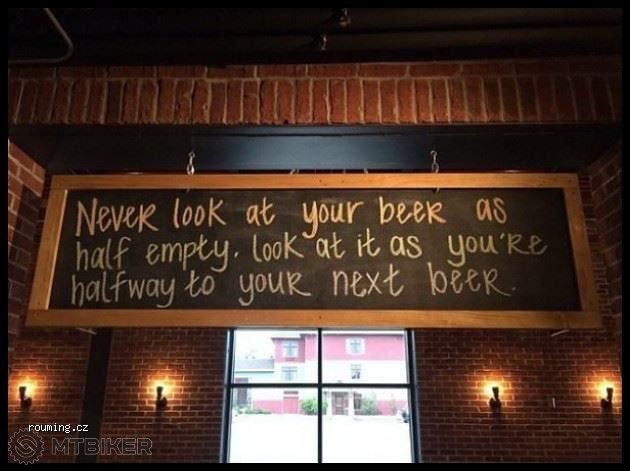 Never look at your beer as
half empty. look at it as you're
halfway to your next beer.
rouming.cz
MTBIKER